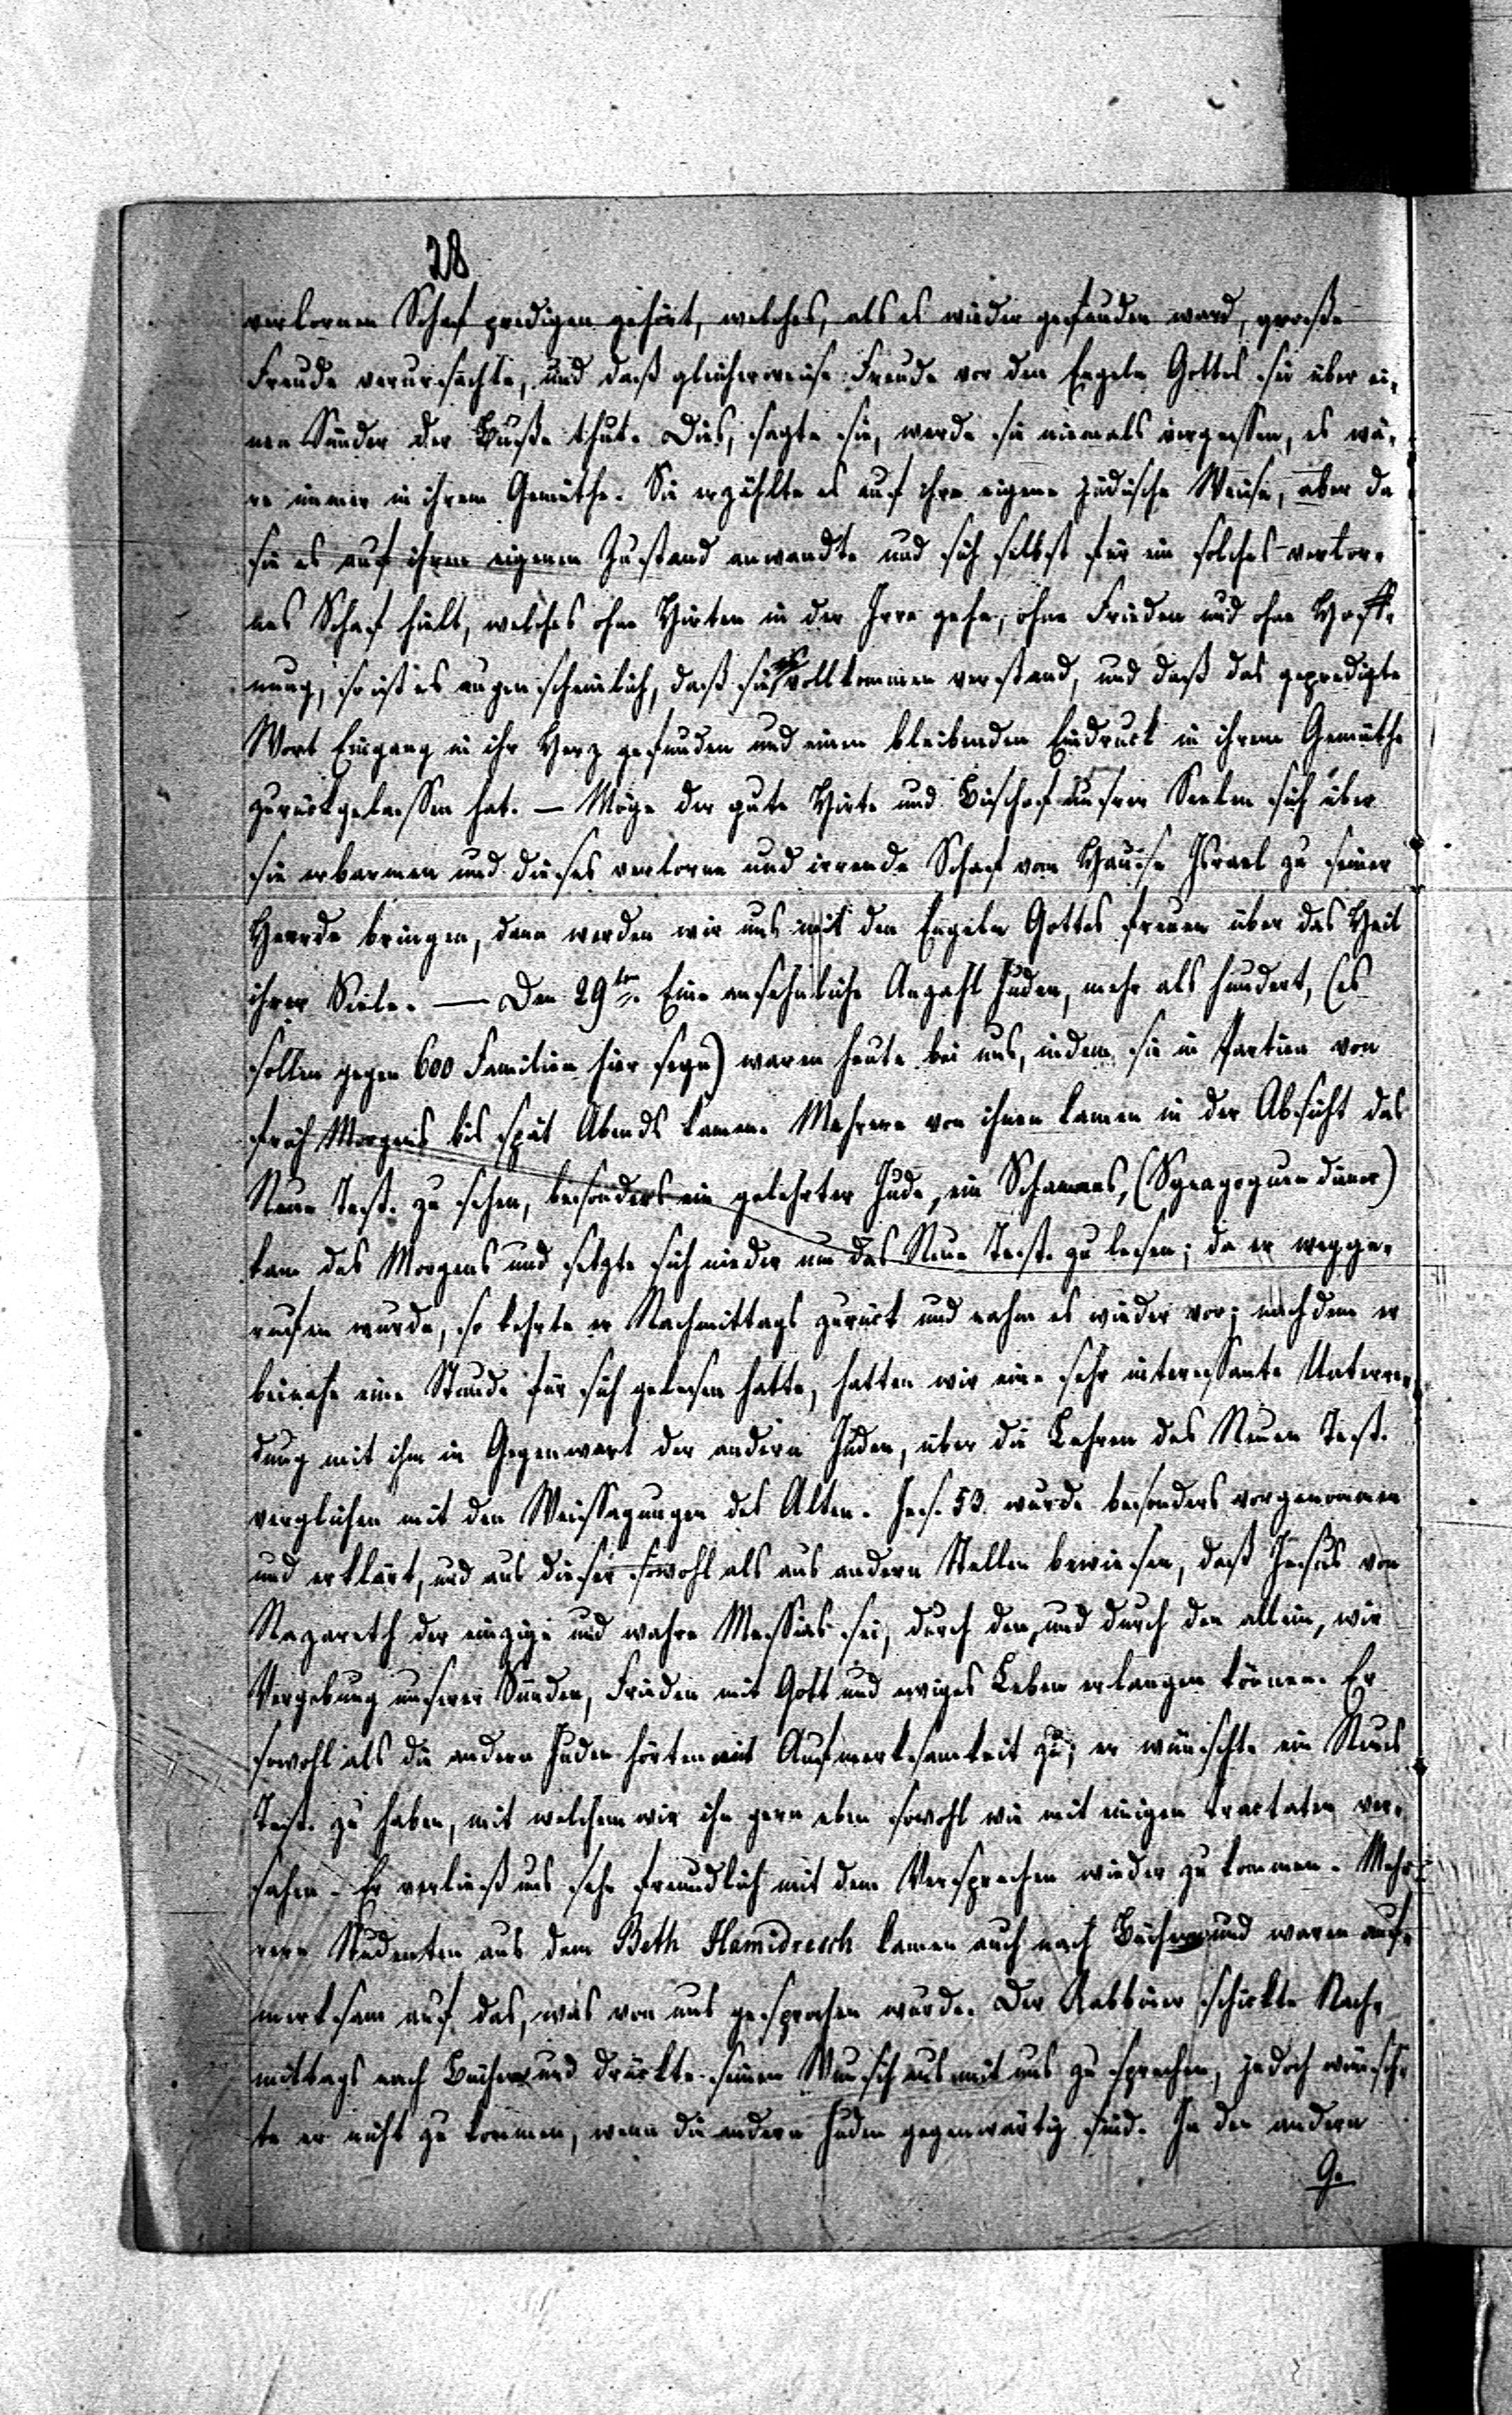 28
verlornen Schaf predigen gehört, welches, als es wieder gefunden ward, große
Freude verursachte, und daß gleicherweise Freude vor den Engeln Gottes sei über ei-
nen Sünder der Buße thut. Dies, sagte sie, werde sie niemals vergessen, es wä-
re immer in ihrem Gemüthe. Sie erzählte es auf ihre eigene jüdische Weise, aber da
sie es auf ihren eigenen Zustand anwandte und sich selbst für ein solches verlor-
nes Schaf hielt, welches ohne Hirten in der Irre gehe, ohne Frieden und ohne Hoff-
nung, so ist es augenscheinlich, daß sie es vollkommen verstand, und daß das gepredigte
Wort Eingang in ihr Herz gefunden und einen bleibenden Eindruck in ihrem Gemüthe
zurückgelassen hat. — Möge der gute Hirte und Bischof unsrer Seelen sich über
sie erbarmen und dieses verlorne und irrende Schaf vom Hause Israel zu seiner
Heerde bringen, dann werden wir uns mit den Engeln Gottes freuen über das Heil
ihrer Seele. — Den 29ten. Eine ansehnliche Anzahl Juden, mehr als hundert, (es
sollen gegen 600 Familien hier seyn) waren heute bei uns, indem sie in Partien von
früh Morgens bis spät Abends kamen. Mehrere von ihnen kamen in der Absicht das
Neue Test. zu sehen, besonders ein gelehrter Jude, ein Schammes, (Synagogendiener)
kam des Morgens und setzte sich nieder um das Neue Test. zu lesen; da er wegge-
rufen wurde, so kehrte er Nachmittags zurück und nahm es wieder vor; nachdem er
beinahe eine Stunde für sich gelesen hatte, hatten wir eine sehr interessante Unterre-
dung mit ihm in Gegenwart der andern Juden, über die Lehren des Neuen Test.
verglichen mit den Weissagungen des Alten. Jes. 53. wurde besonders vorgenommen
und erklärt, und aus dieser sowohl als aus andern Stellen bewiesen, daß Jesus von
Nazareth der einzige und wahre Messias sei, durch den, und durch den allein, wir
Vergebung unserer Sünden, Frieden mit Gott und ewiges Leben erlangen können. Er
sowohl als die andern Juden hörten mit Aufmerksamkeit zu; er wünschte ein Neues
Test. zu haben, mit welchem wir ihn gern eben sowohl wie mit einigen Tractaten ver-
sahen. Er verließ uns sehr freundlich mit dem Versprechen wieder zu kommen. Meh-
rere Studenten aus dem Beth Hamidresch kamen auch nach Büchern und waren auf-
merksam auf das, was von uns gesprochen wurde. Der Rabbiner schickte Nach-
mittags nach Büchern und drückte seinen Wunsch aus mit uns zu sprechen, jedoch wünsch-
te er nicht zu kommen, wenn die andern Juden gegenwärtig sind. In den andern
G.